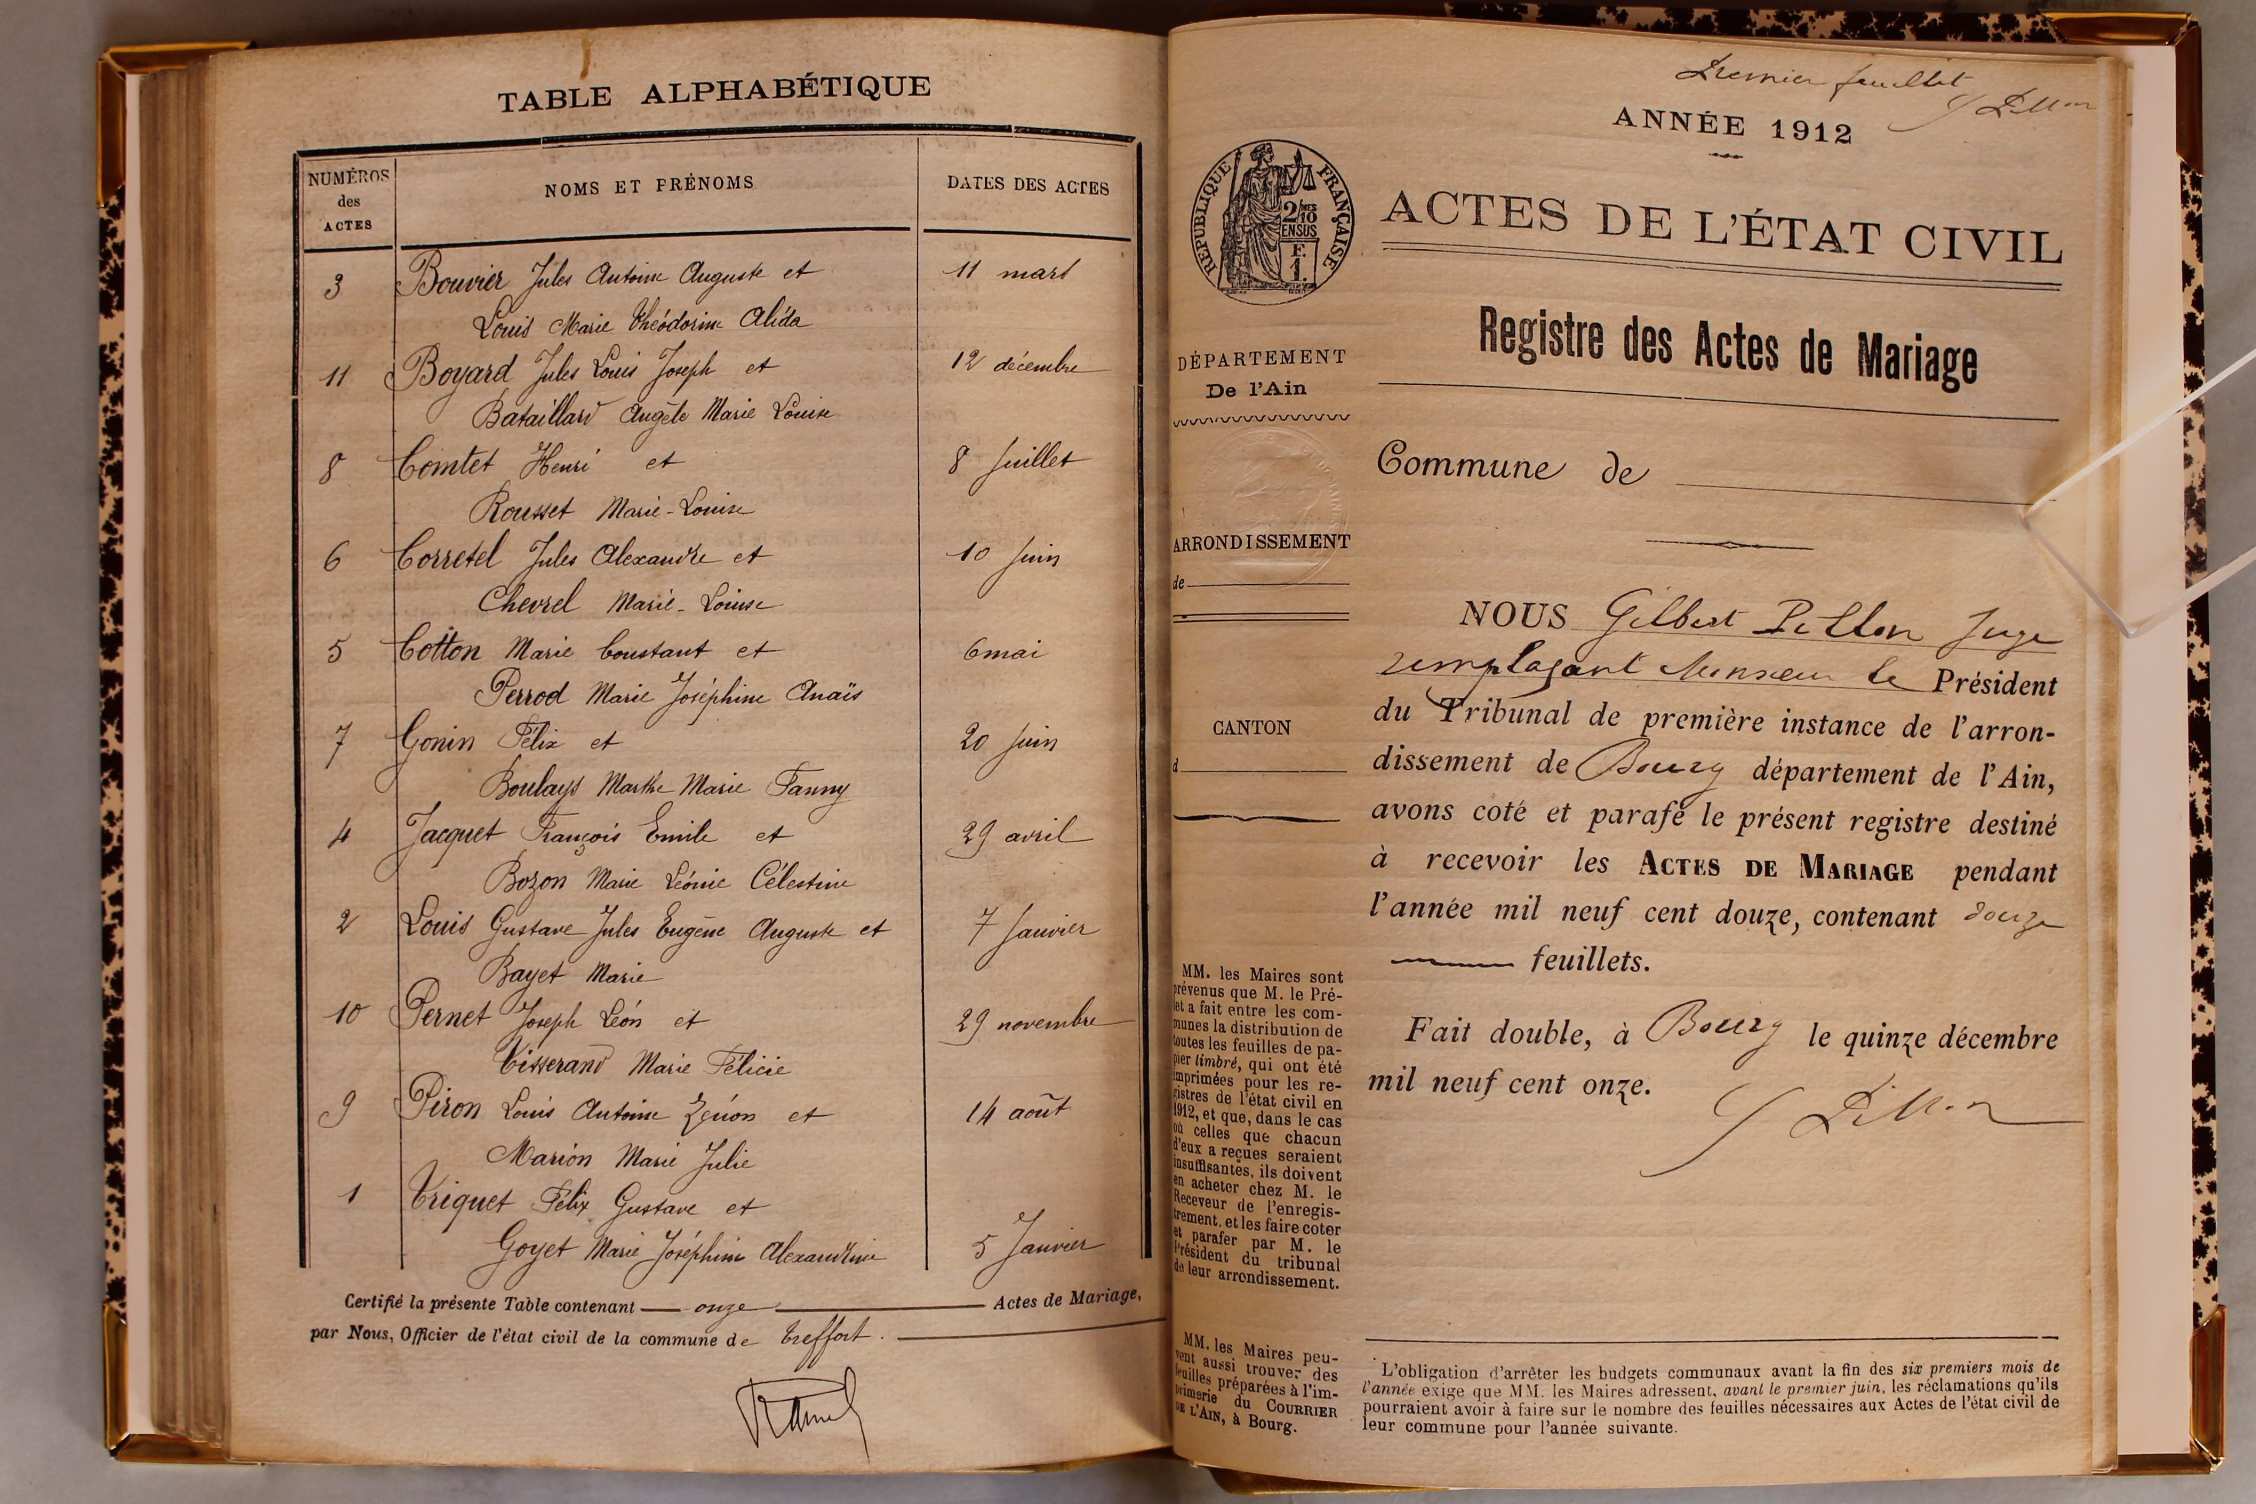 TABLE ALPHABÉTIQUE
NUMÉROS des ACTES NOMS ET PRÉNOMS DATES DES ACTES
3 Bouvier Jules Antoine Auguste et 11 mars
Louis Marie Théodorine Alida
11 Boyard Jules Louis Joseph et 12 décembre
Bataillard Angèle Marie Louise
8 Comtet Henri et 8 Juillet
Rousset Marie-Louise
6 Corretel Jules Alexandre et 10 Juin
Chevrel Marie-Louise
5 Cotton Marie Constant et 6 mai
Perrod Marie Joséphine Anaïs
7 Gonin Félix et 20 Juin
Boulays Marthe Marie Fanny
4 Jacquet François Emile et 29 avril
Bozon Marie Léonie Célestine
2 Louis Gustave Jules Eugène Auguste et 7 Janvier
Bayet Marie
10 Pernet Joseph Léon et 29 novembre
Tisserand Marie Félicie
9 Piron Louis Antoine Zénon et 14 août
Marion Marie Julie
1 Triquet Félix Gustave et
Goyet Marie Joséphine Alexandrine 5 Janvier
Certifié la présente Table contenant onze Actes de Mariage,
par Nous, Officier de l'état civil de la commune de Treffort.
Premier feuillet
G Pillon
ANNÉE 1912
RÉPUBLIQUE FRANÇAISE
2/10
EN SUS
F.
1.
ACTES DE L'ÉTAT CIVIL
Registre des Actes de Mariage
DÉPARTEMENT
De l'Ain
Commune de
ARRONDISSEMENT
de
CANTON
d
NOUS Gilbert Pillon Juge
remplaçant Monsieur le Président
du Tribunal de première instance de l'arron-
dissement de Bourg département de l'Ain,
avons coté et parafé le présent registre destiné
à recevoir les ACTES DE MARIAGE pendant
l'année mil neuf cent douze, contenant douze
feuillets.
Fait double, à Bourg le quinze décembre
mil neuf cent onze.
G Pillon
MM. les Maires sont
prévenus que M. le Pré-
fet a fait entre les com-
munes la distribution de
toutes les feuilles de pa-
pier timbré, qui ont été
imprimées pour les re-
gistres de l'état civil en
1912, et que, dans le cas
où celles que chacun
d'eux a reçues seraient
insuffisantes, ils doivent
en acheter chez M. le
Receveur de l'enregis-
trement, et les faire coter
et parafer par M. le
Président du tribunal
de leur arrondissement.
MM. les Maires peu-
vent aussi trouver des
feuilles préparées à l'im-
primerie du COURRIER
DE L'AIN, à Bourg.
L'obligation d'arrêter les budgets communaux avant la fin des six premiers mois de
l'année exige que MM. les Maires adressent, avant le premier juin, les réclamations qu'ils
pourraient avoir à faire sur le nombre des feuilles nécessaires aux Actes de l'état civil de
leur commune pour l'année suivante.